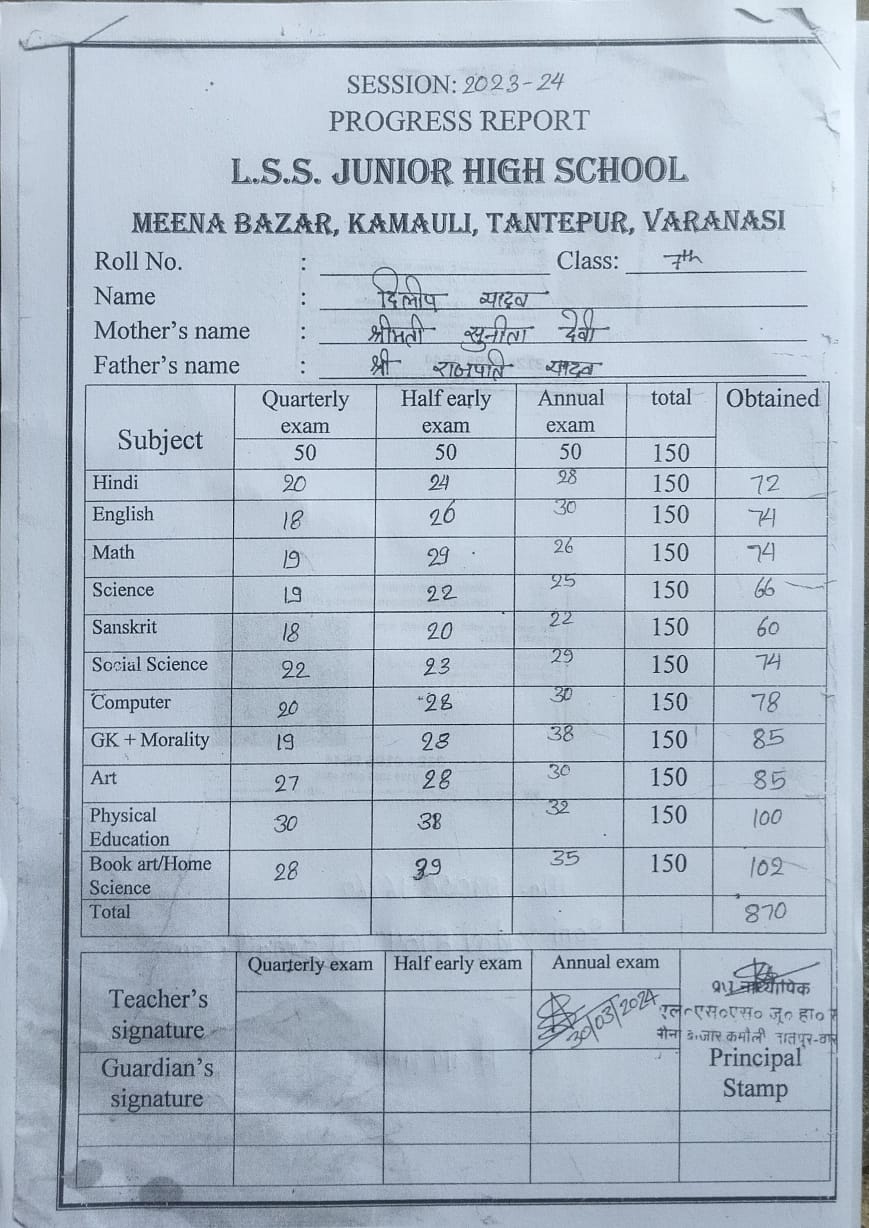 SESSION: 2023-24
PROGRESS REPORT
L.S.S. JUNIOR HIGH SCHOOL
MEENA BAZAR, KAMAULI, TANTEPUR, VARANASI
Roll No. : Class: 7th
Name : दिलीप यादव
Mother's name : श्रीमती सुनीता देवी
Father's name : श्री राजपति यादव
Subject Quarterly exam Half early exam Annual exam total Obtained
50 50 50 150
Hindi 20 24 28 150 72
English 18 26 30 150 74
Math 19 29 26 150 74
Science 19 22 25 150 66
Sanskrit 18 20 22 150 60
Social Science 22 23 29 150 74
Computer 20 28 30 150 78
GK + Morality 19 28 38 150 85
Art 27 28 30 150 85
Physical Education 30 38 32 150 100
Book art/Home Science 28 39 35 150 102
Total 870
Quarterly exam Half early exam Annual exam
Teacher's signature 30/03/2024
एल०एस०एस० जू० हा०
Guardian's signature Principal Stamp